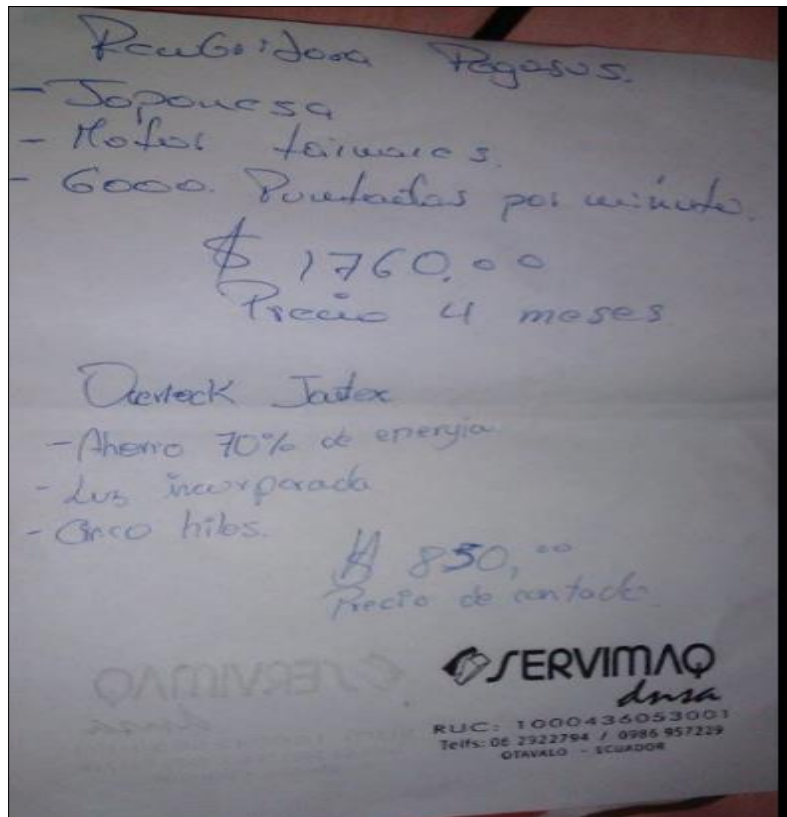 Recubridora Pegasus.
- Japonesa
- Motor taiwanes.
- 6000. Puntadas por minuto.
$ 1760,00
Precio 4 meses
Overlock Jontex
- Ahorro 70% de energia
- Luz incorporada
- Cinco hilos.
$ 850,00
Precio de contado.
SERVIMAQ
dnsa
RUC: 1000436053001
Telfs: 06 2922794 / 0986 957229
OTAVALO - ECUADOR